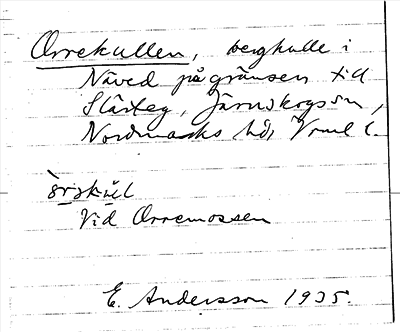 Orrekullen, bergkulle i
Näved på gränsen till
Slärteg, Järnskogs sn,
Nordmarks hd, Vrml l.
òrskúl
Vid Orremossen
E. Andersson 1935.